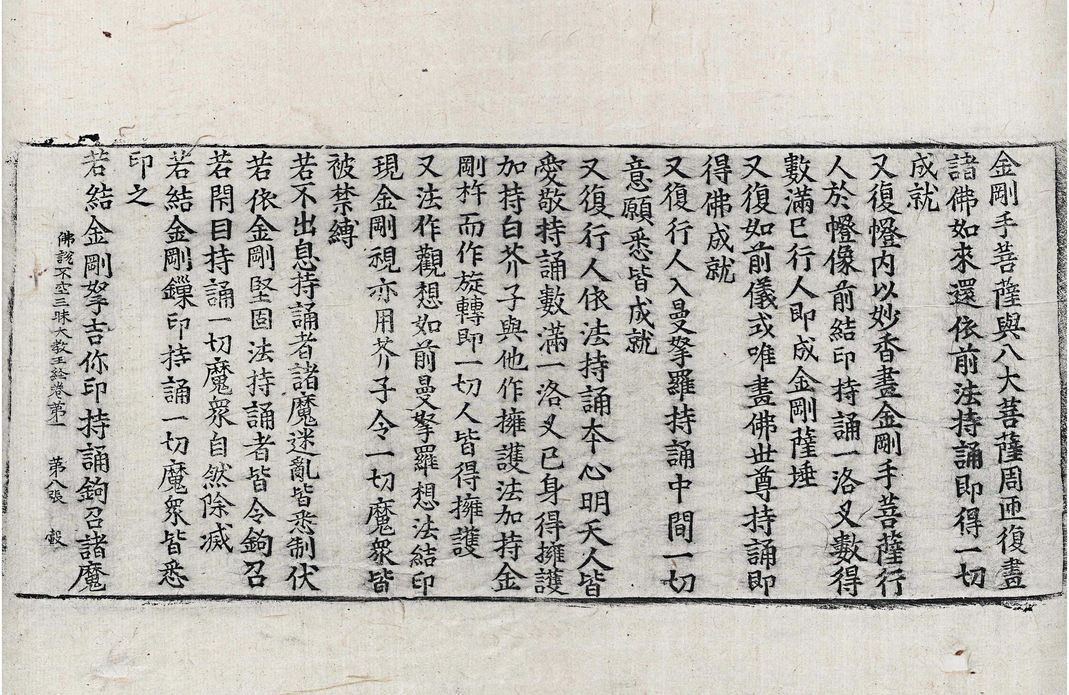 金剛手菩薩與八大菩薩周迊復畫
諸佛如來還依前法持誦即得一切
成就
又復㡧内以妙香畫金剛手菩薩行
人於㡧像前結印持誦一洛叉數得
數滿已行人即成金剛薩埵
又復如前儀或唯畫佛世尊持誦即
得佛成就
又復行人入曼拏羅持誦中間一切
意願悉皆成就
又復行人依法持誦本心明天人皆
愛敬持誦數滿一洛叉已身得擁護
加持白芥子與他作擁護法加持金
剛杵而作旋轉即一切人皆得擁護
又法作觀想如前曼拏羅想法結印
現金剛視亦用芥子令一切魔衆皆
被禁縛
若不出息持誦者諸魔迷亂皆悉制伏
若依金剛堅固法持誦者皆令鉤召
若閇目持誦一切魔衆自然除滅
若結金剛鏁印持誦一切魔衆皆悉
印之
佛說不空三昧大教王經卷第一 第八張 縠
若結金剛拏吉你印持誦鉤召諸魔